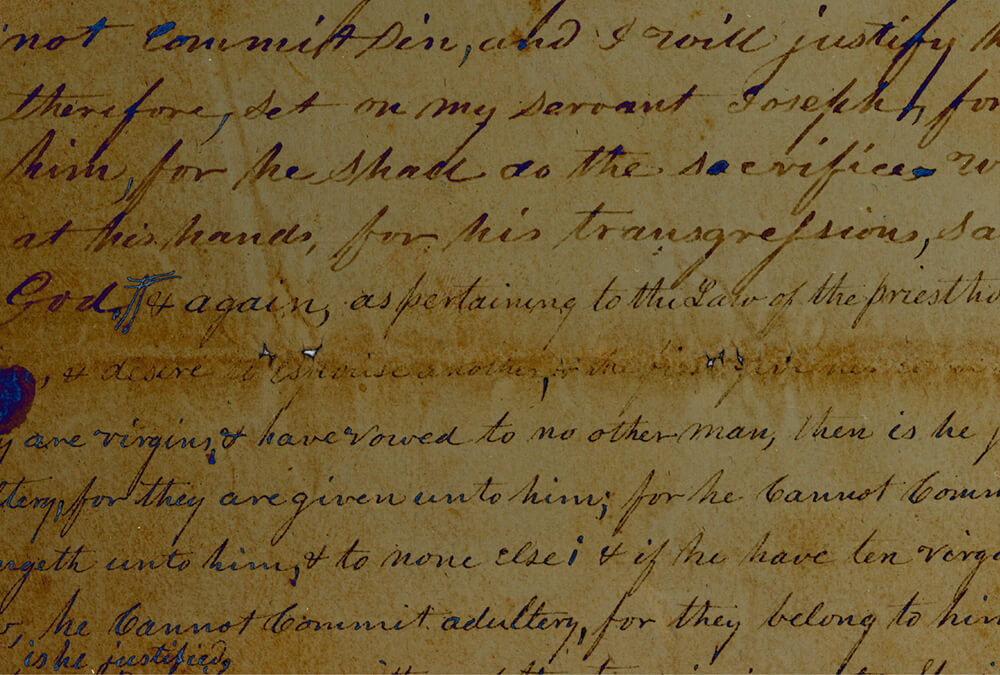 not commit sin, and I will justify
therefore, set on my servant Joseph, for
him, for he shall do the sacrifice
at his hands, for his transgressions, sa
God. & again, as pertaining to the Law of the priestho
, & desire to espouse another, & the first give her
y are virgins, & have vowed to no other man, then is he
ltery, for they are given unto him; for he Cannot Comm
ngeth unto him, & to none else; & if he have ten virg
, he Cannot Commit adultery, for they belong to him
is he justified,